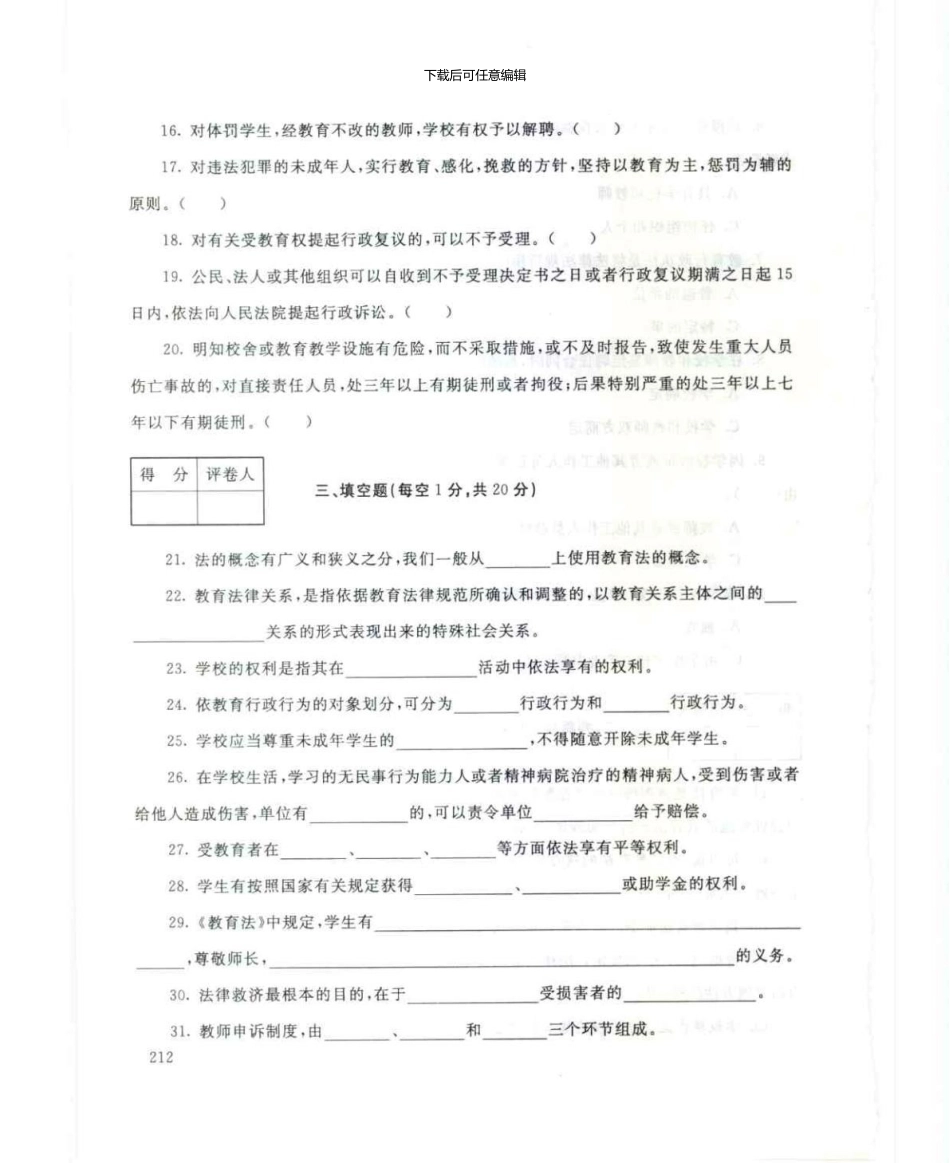 下载后可任意编辑
16. 对体罚学生,经教育不改的教师,学校有权予以解聘。(　　)
17. 对违法犯罪的未成年人,实行教育、感化,挽救的方针,坚持以教育为主,惩罚为辅的
原则。(　　)
18. 对有关受教育权提起行政复议的,可以不予受理。(　　)
19. 公民、法人或其他组织可以自收到不予受理决定书之日或者行政复议期满之日起 15
日内,依法向人民法院提起行政诉讼。(　　)
20. 明知校舍或教育教学设施有危险,而不采取措施,或不及时报告,致使发生重大人员
伤亡事故的,对直接责任人员,处三年以上有期徒刑或者拘役;后果特别严重的处三年以上七
年以下有期徒刑。(　　)
得 分 评卷人
三、填空题(每空 1 分,共 20 分)
21. 法的概念有广义和狭义之分,我们一般从______上使用教育法的概念。
22. 教育法律关系,是指依据教育法律规范所确认和调整的,以教育关系主体之间的___
____________关系的形式表现出来的特殊社会关系。
23. 学校的权利是指其在____________活动中依法享有的权利。
24. 依教育行政行为的对象划分,可分为______行政行为和______行政行为。
25. 学校应当尊重未成年学生的____________,不得随意开除未成年学生。
26. 在学校生活,学习的无民事行为能力人或者精神病院治疗的精神病人,受到伤害或者
给他人造成伤害,单位有_________的,可以责令单位_________给予赔偿。
27. 受教育者在______、______、______等方面依法享有平等权利。
28. 学生有按照国家有关规定获得_________、_________或助学金的权利。
29.《教育法》中规定,学生有________________________________________
____,尊敬师长,____________________________________________的义务。
30. 法律救济最根本的目的,在于____________受损害者的____________。
31. 教师申诉制度,由______、______和______三个环节组成。
212